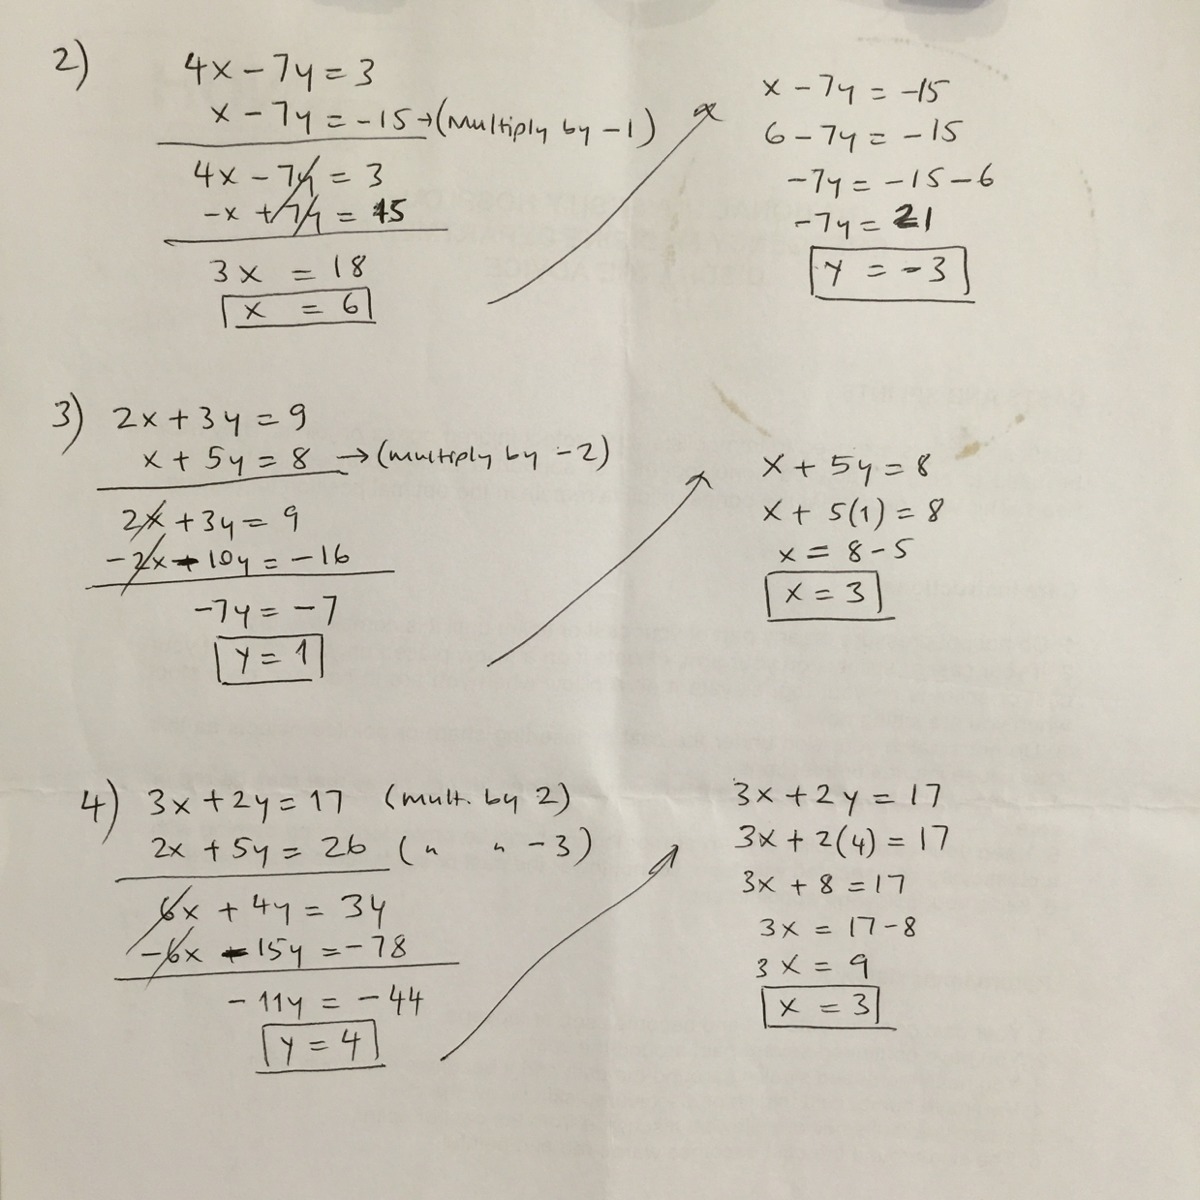 2)
4x - 7y = 3
x - 7y = -15 → (multiply by -1)
4x - 7y = 3
-x + 7y = 15
3x = 18
x = 6
x - 7y = -15
6 - 7y = -15
-7y = -15 - 6
-7y = 21
y = -3
3) 2x + 3y = 9
x + 5y = 8 → (multiply by -2)
2x + 3y = 9
-2x - 10y = -16
-7y = -7
y = 1
x + 5y = 8
x + 5(1) = 8
x = 8 - 5
x = 3
4) 3x + 2y = 17 (mult. by 2)
2x + 5y = 26 (" " -3)
6x + 4y = 34
-6x - 15y = -78
-11y = -44
y = 4
3x + 2y = 17
3x + 2(4) = 17
3x + 8 = 17
3x = 17 - 8
3x = 9
x = 3